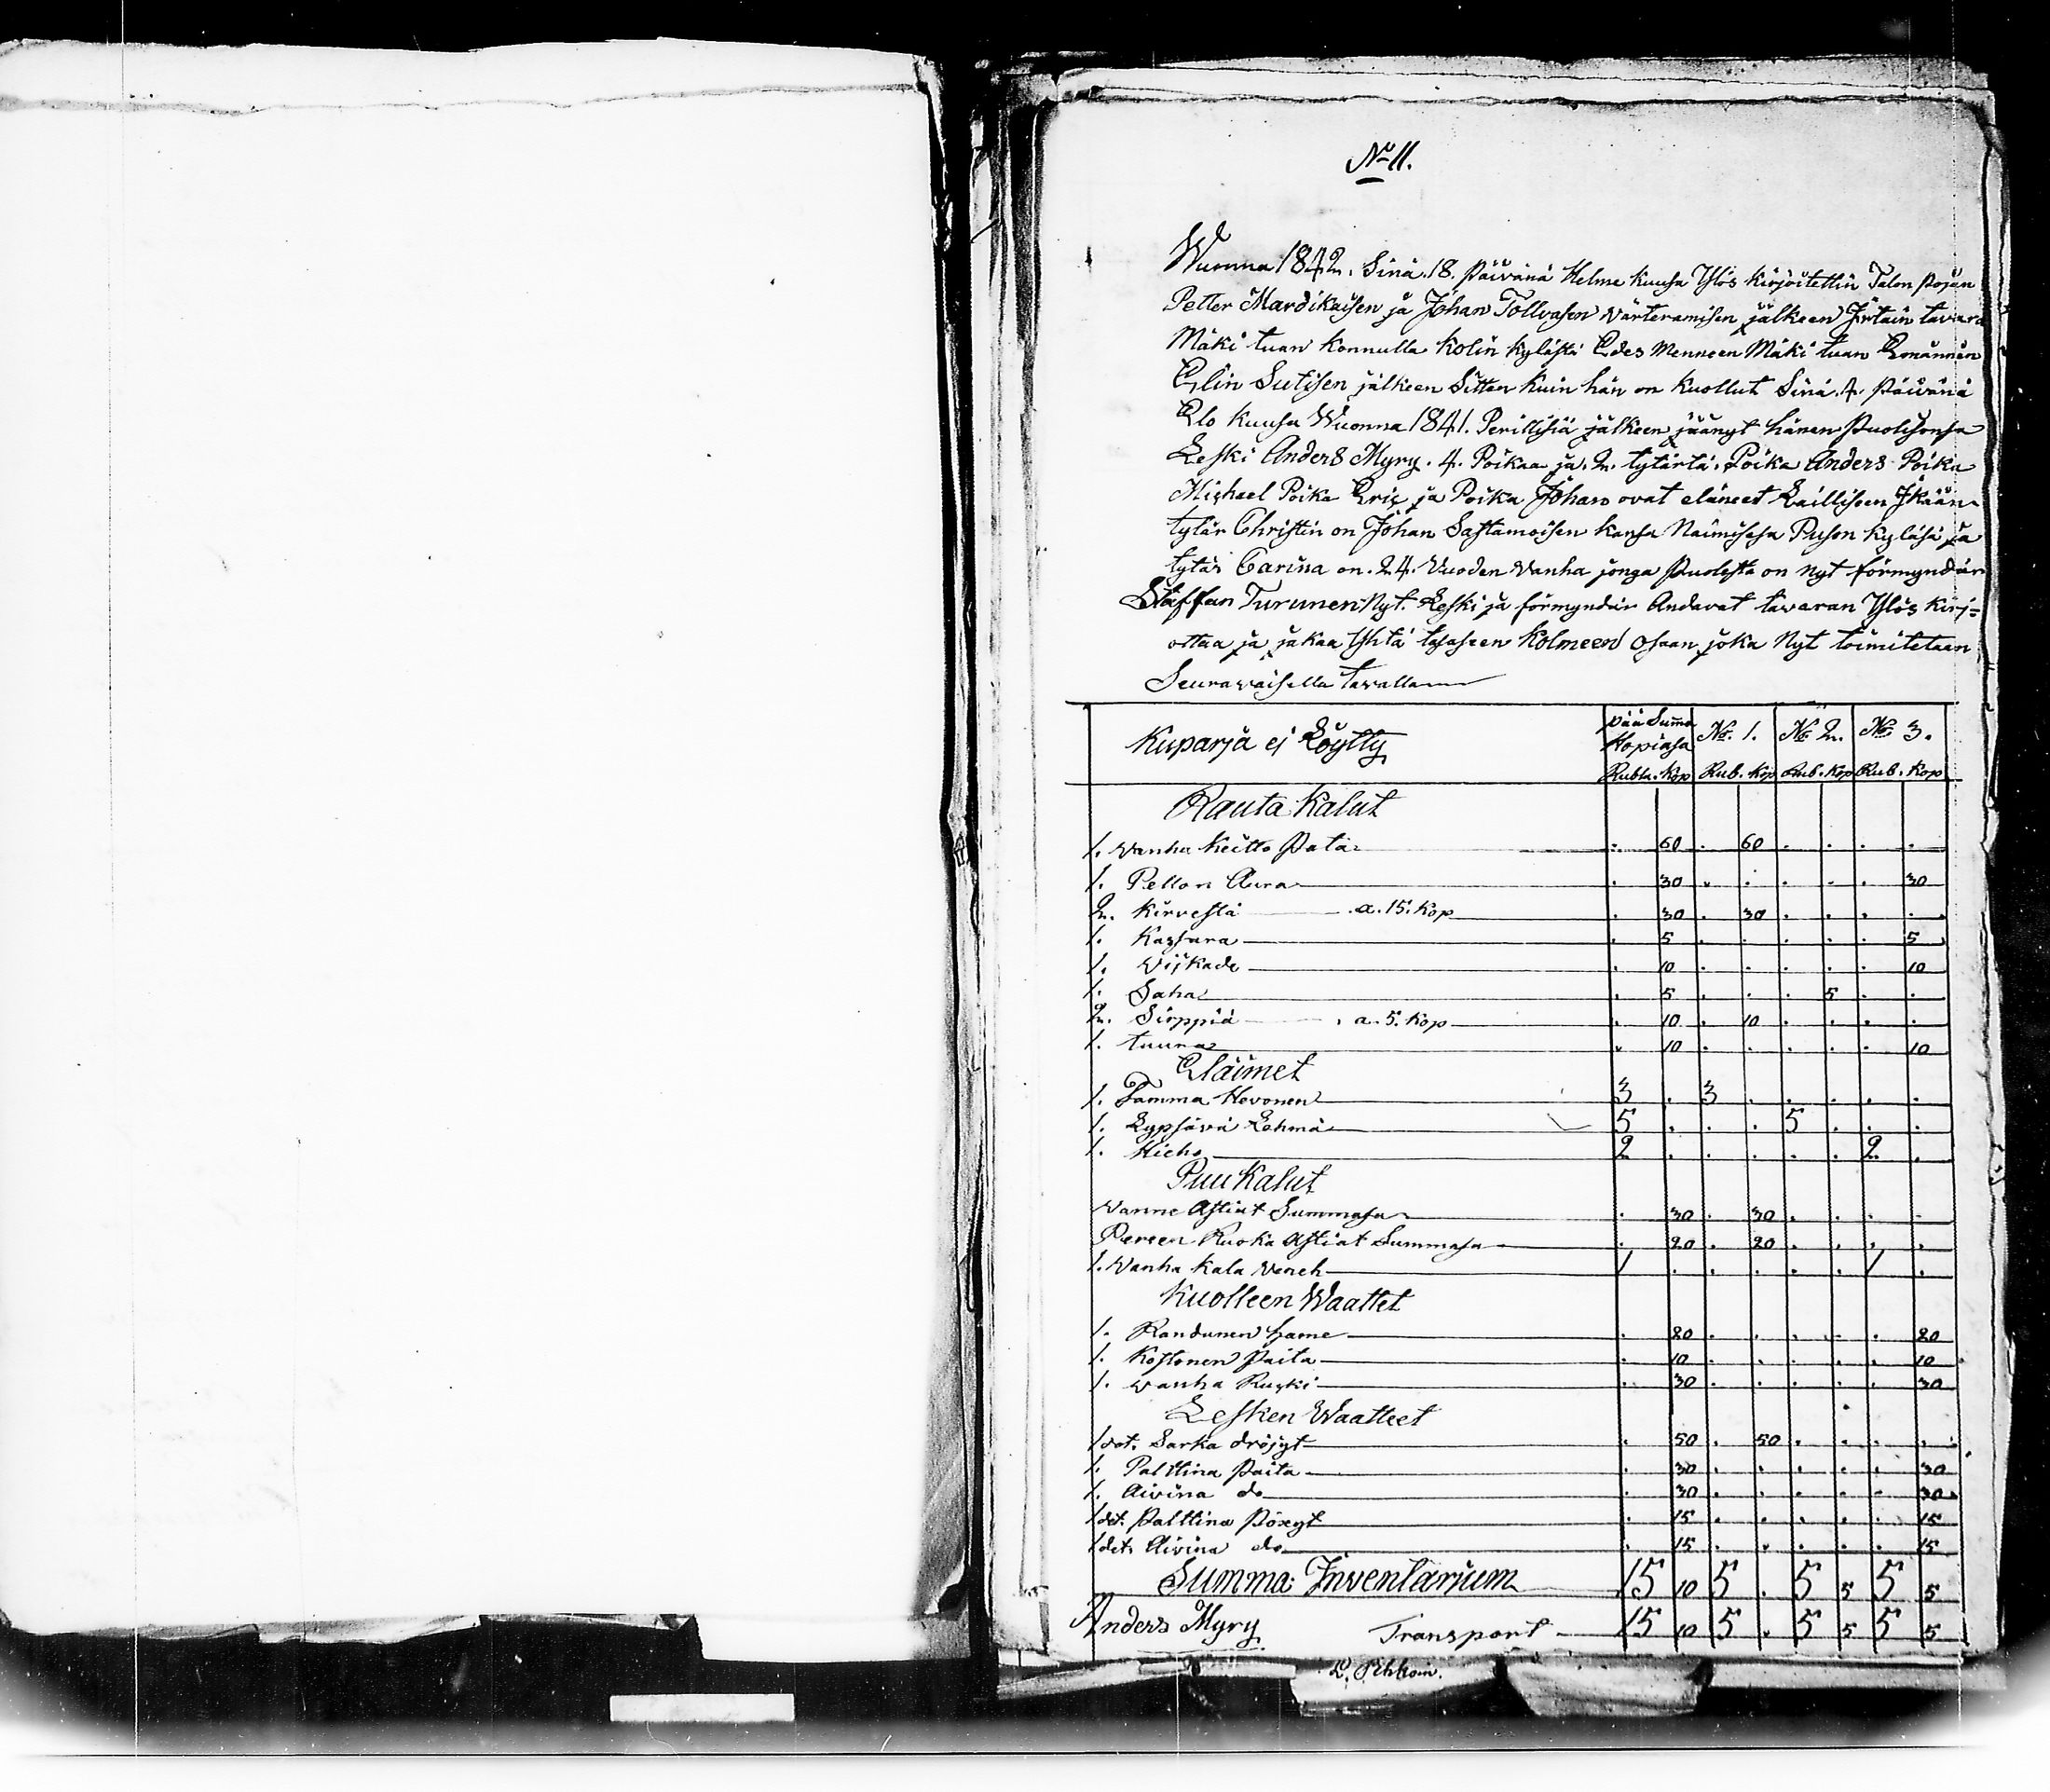 No 11.
Wuonna 1842. Sinä 18. Päivänä Helme kuusa Ylös kirjoitettiin Talon Pojan
Petter Mardikaisen ja Johan Tollvasen värteramisen jälkeen Jrtain tavara
Mäki tuan konnulla kolin kylästä Edes menneen Mäki tuan Emännän
Elin Sutisen jälkeen Sitten kuin hän on kuollut Sinä 4. Päivänä
Elo kuusa Wuonna 1841. Perillisiä jälkeen jäänyt hänen Puolisonsa
Leski Anders Myry. 4. Poikaa ja 2. tytärtä. Poika Anders Poika
Michael Poika Eric ja Poika Johan ovat eläneet Lailliseen Jkään
tytär Christin on Johan Sastamoisen kansa Naimisesa Puson kyläsä ja
tytär Carina on 24. Vuoden Vanha jonga Puolesta on nyt förmyndär
Staffan Turunen Nyt. Leski ja förmyndär Andavat tavaran Ylös kirj=
ottaa ja jakaa Yhtä tasaseen kolmeen osaan joka Nyt toimitetaan
Seuravaisella tavalla
Kuparja ej Löytty pää Summa Hopiasa No. 1. No 2. No 3.
Rubla. Kop Rub. Kop Rub. Kop Rub. Kop
Rauta Kalut
1. Vanha keitto Pata . 60 . 60 . . . .
1. Pellon Aura . 30 . . . . . 30
2. kirvestä a. 15. kop . 30 . 30 . . . .
1. Kassara . 5 . . . . . 5
1. Vijkade . 10 . . . . . 10
1. Saha . 5 . . . 5 . .
2. Sirppiä a. 5. kop . 10 . 10 . . . .
1. tuura . 10 . . . . . 10
Eläimet
1. Tamma Hevonen 3 . 3 . . . . .
1. Lypsävä Lehmä 5 . . . 5 . . .
1. Hieho 2 . . . . . 2 .
Puu Kalut
Vanne Astiat Summasa . 30 . 30 . . . .
Pereen Ruoka Astiat Summasa . 20 . 20 . . . .
1. Vanha kala Veneh 1 . . . . . 1 .
Kuolleen Waattet
1. Randunen hame . 20 . . . . . 20
1. Kostonen Paita . 10 . . . . . 10
1. Vanha Ruski . 30 . . . . . 30
Lesken Waatteet
1 det. Sarka dröjyt . 50 . 50 . . . .
1. Palttina Paita . 30 . . . . . 30
1. Aivina do . 30 . . . . . 30
1 det. Palttina Pöxyt . 15 . . . . . 15
1 det. Aivina do . 15 . . . . . 15
Summa Jnventarium 15 10 5 . 5 5 5 5
Anders Myry Transport 15 10 5 . 5 5 5 5